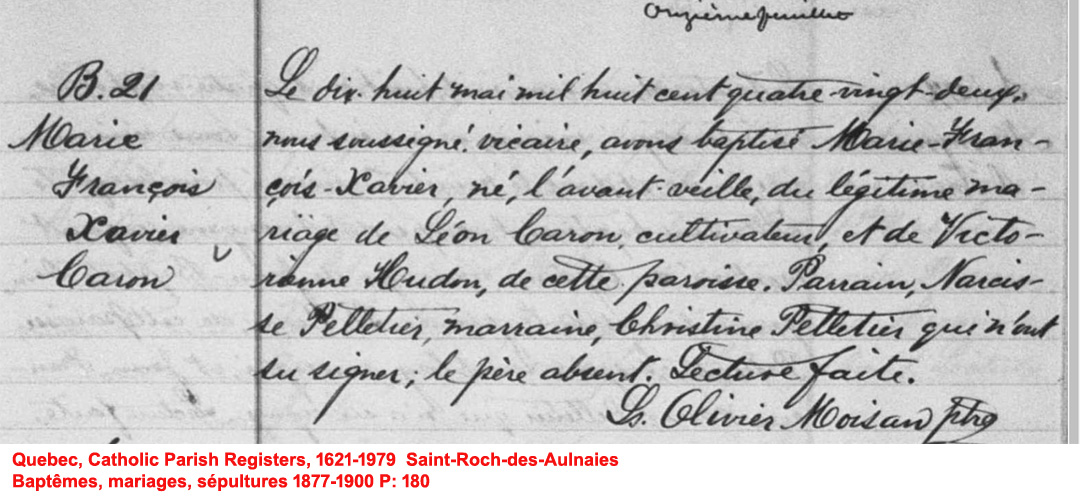 Onzième feuillet
B. 21
Marie
François
Xavier
Caron
Le dix-huit mai mil huit cent quatre-vingt-deux,
nous soussigné vicaire, avons baptisé Marie-Fran-
çois-Xavier, né, l'avant-veille, du légitime ma-
riage de Léon Caron, cultivateur, et de Victo-
rianne Hudon, de cette paroisse. Parrain, Narcis-
se Pelletier, marraine, Christine Pelletier qui n'ont
su signer; le père absent. Lecture faite.
Ls. Olivier Moisan ptre
Quebec, Catholic Parish Registers, 1621-1979 Saint-Roch-des-Aulnaies
Baptêmes, mariages, sépultures 1877-1900 P: 180